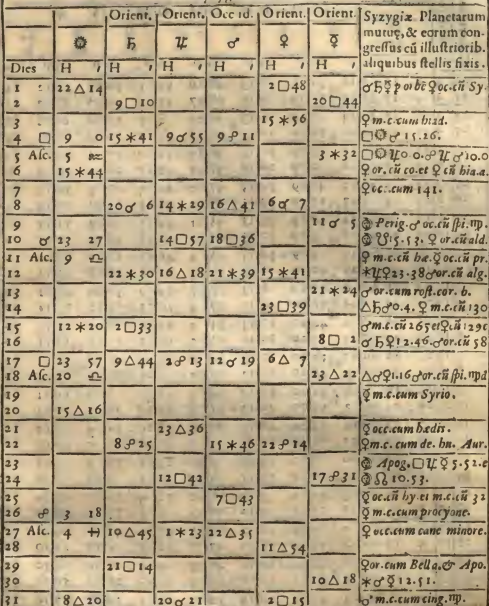 Orient. Orient. Occid. Orient. Orient. Syzygiæ Planetarum
mutuę, & eorum con-
☉ ♄ ♃ ♂ ♀ ☿ gressus cū illustriorib.
aliquibus stellis fixis.
Dies H ′ H ′ H ′ H ′ H ′ H ′
1 22△14 2□48 ☌♄☿ p orbē ♀ oc. cū Sy.
2 9□10 20□44
3 15✶56 ♀ m.c. cum hiad.
4 □ 9 0 15✶41 9☌55 9☍11 □☉♂ 15.26.
5 Asc. 5 ♒ 3✶32 □☉♃ 0 0. ☍♃♂ 10.0
6 15✶44 ♀ or. cū co. et ♀ cū hia.a.
7 ♀ occ. cum 141.
8 20☌6 14✶29 16△41 6☌7
9 11☌5 Perig. ♂ oc. cū spi. ♍
10 ☌ 23 27 14□57 18□36 ☋ 5.53. ♀ or. cū ald.
11 Asc. 9 ♎ ♀ m.c. cū hæ. ☿ oc. cū pr.
12 22✶30 16△18 21✶39 15✶41 ✶♃♀ 23.38 ♂ or. cū alg.
13 21✶24 ♂ or. cum rost. cor. b.
14 23□39 △♄♂ 0.4. ♀ m.c. cū 130
15 12✶20 2□33 ♂ m.c. cū 265 et ♀ cū 129
16 8□2 ☌♄♀ 12.46. ♂ or. cū 58
17 □ 23 57 9△44 2☍13 12☌19 6△7
18 Asc. 20 ♎ 23△22 △♂♀ 1.16 ♂ or. cū spi. ♍
19 ☿ m.c. cum Syrio.
20 15△16
21 23△36 ♀ occ. cum hædis.
22 8☍25 15✶46 22☍14 ♀ m.c. cum de. hu. Aur.
23 Apog. □♃☿ 5.52.
24 12□42 17☍31 ☊ 10.53.
25 7□43 ☿ oc. cū hy. et m.c. cū 32
26 ☍ 3 18 ☿ m.c. cum procyone.
27 Asc. 4 10△45 1✶23 22△35 ♀ occ. cum cane minore.
28 11△54
29 21□14 ♀ or. cum Bella. & Apo.
30 10△18 ✶♂☿ 12.51.
31 8△20 20☌21 2□15 ♂ m.c. cum cing. ♍